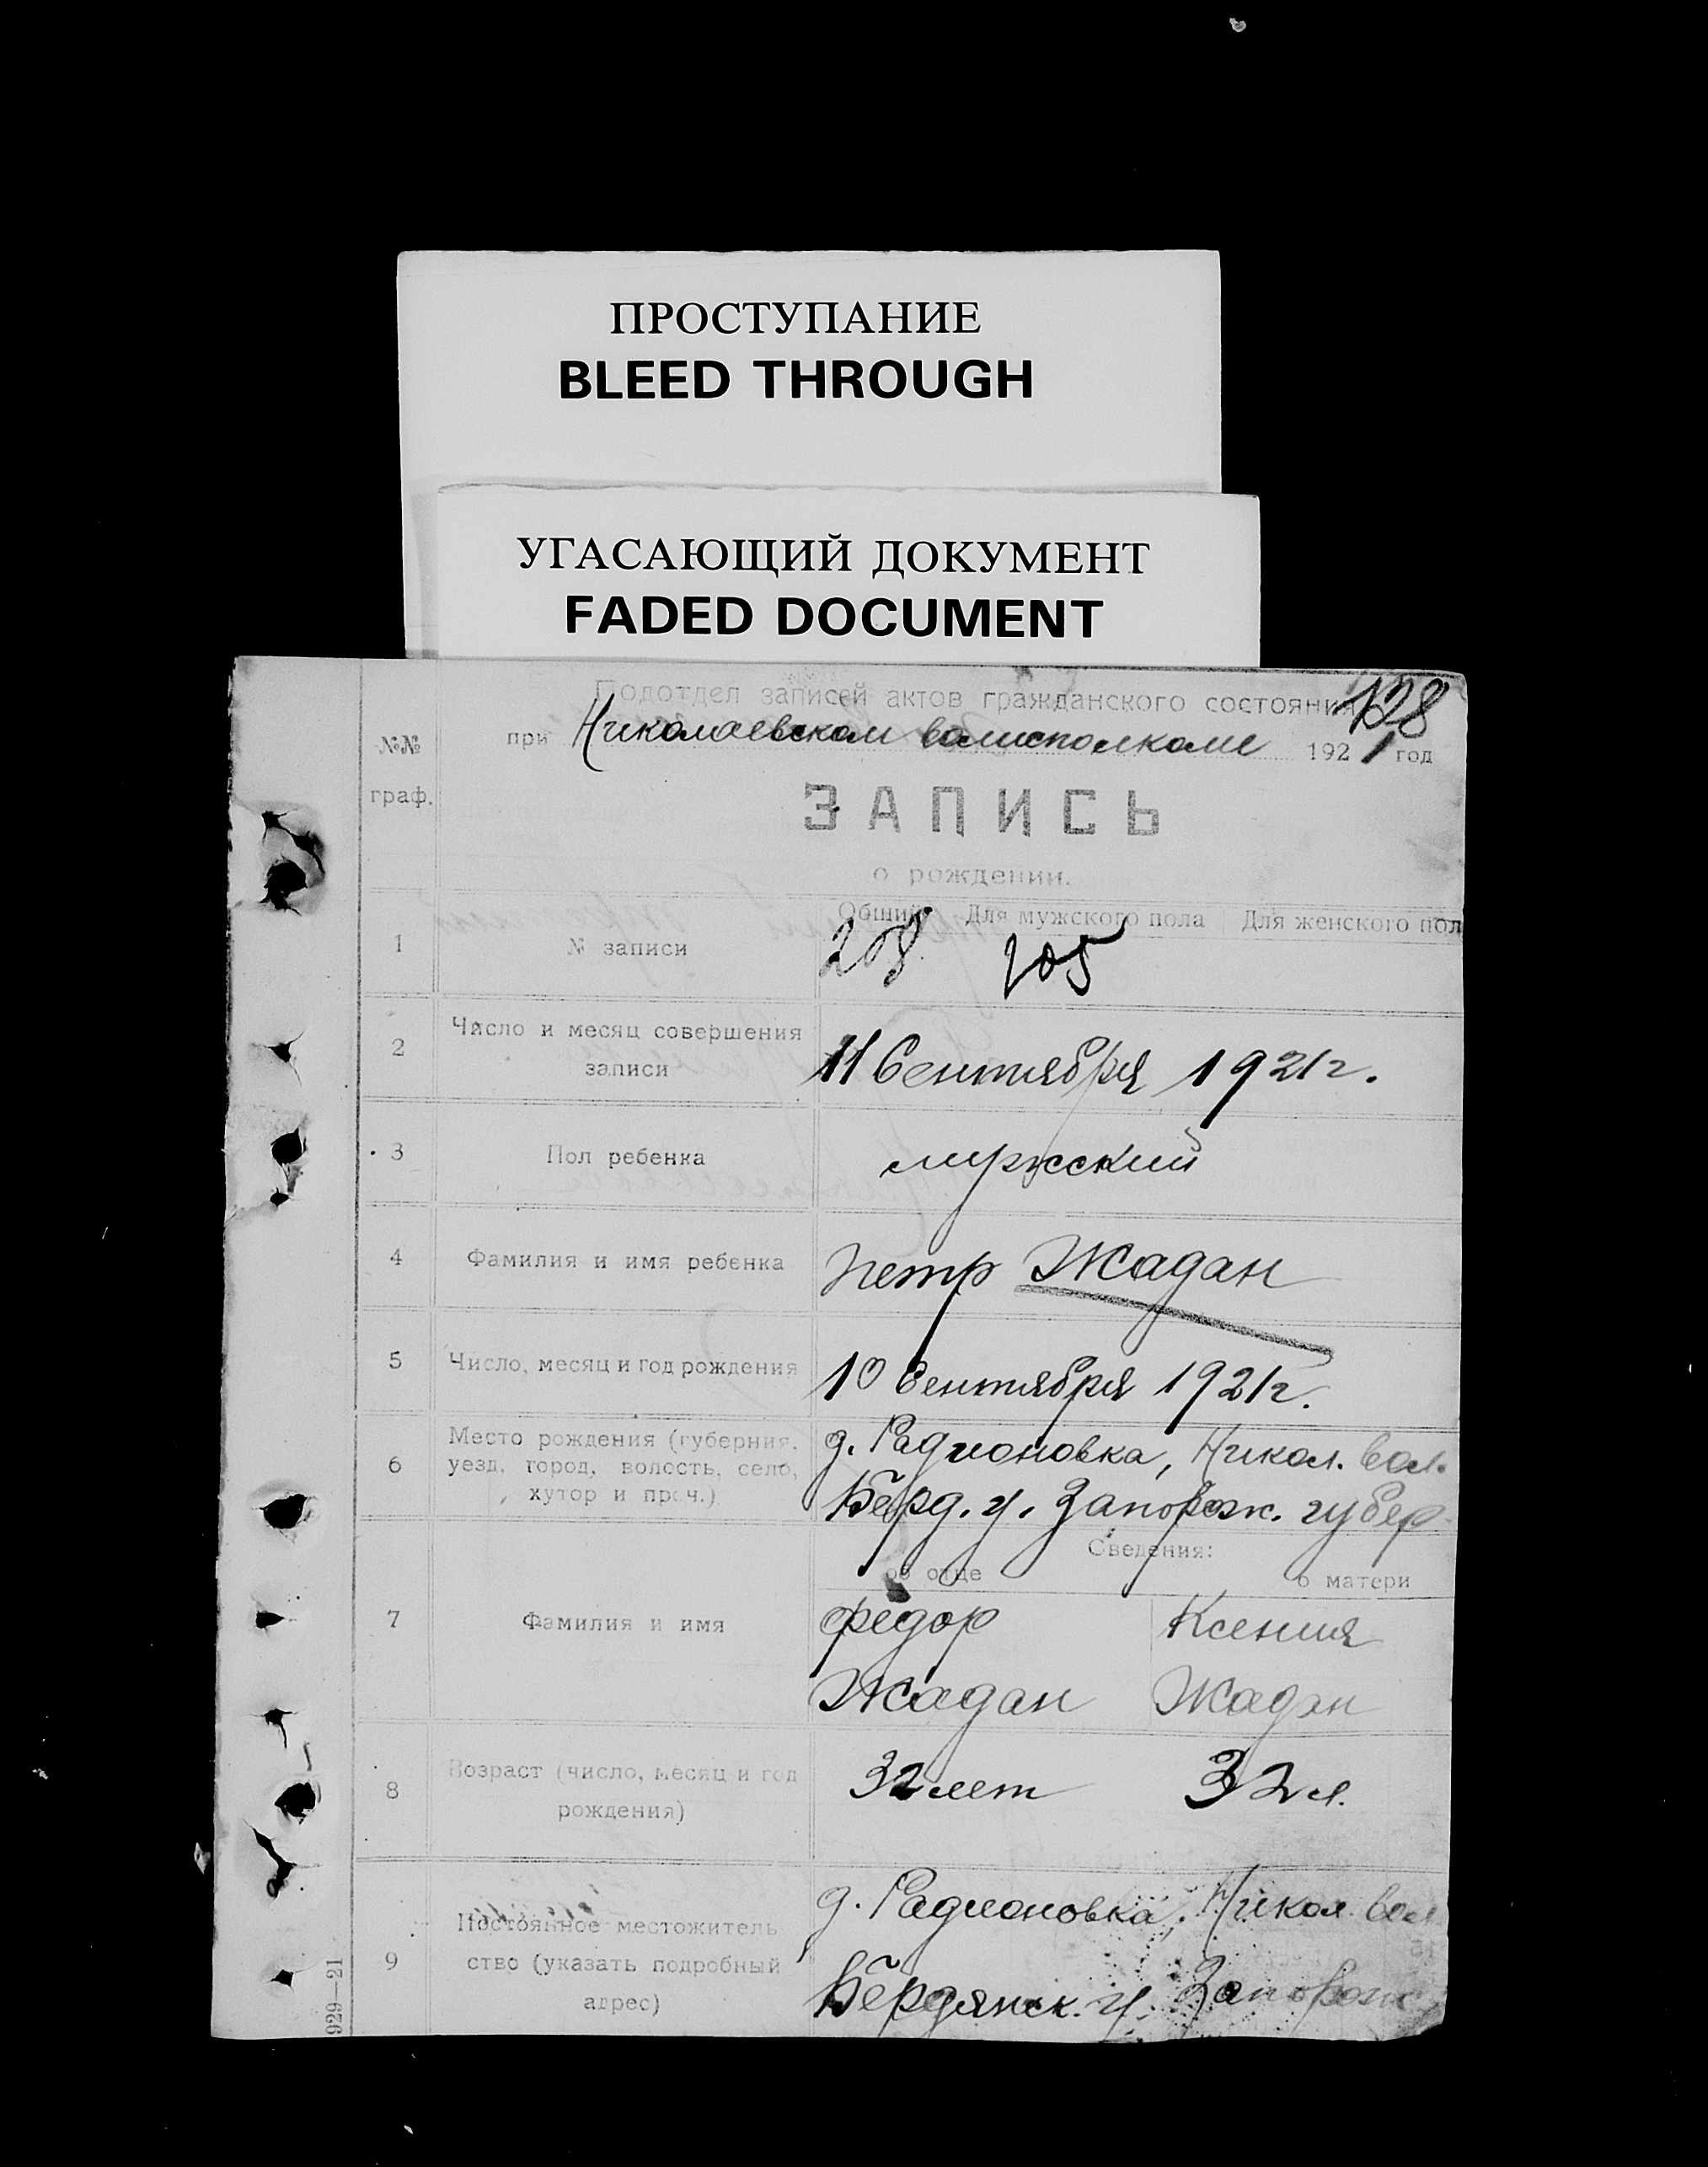 ПРОСТУПАНИЕ
BLEED THROUGH
УГАСАЮЩИЙ ДОКУМЕНТ
FADED DOCUMENT
128
Подотдел записей актов гражданского состояния
при Николаевском волисполкоме 1921 год
№№ граф.
ЗАПИСЬ
о рождении.
Общий Для мужского пола Для женского пол
1 № записи 208 105
2 Число и месяц совершения записи 11 Сентября 1921г.
3 Пол ребенка мужский
4 Фамилия и имя ребенка Петр Жадан
5 Число, месяц и год рождения 10 Сентября 1921г.
6 Место рождения (губерния, уезд, город, волость, село, хутор и проч.) д. Радионовка, Никол. вол.
Берд. у. Запорож. губер
Сведения:
об отце о матери
7 Фамилия и имя Федор Ксения
Жадан Жадан
8 Возраст (число, месяц и год рождения) 32 лет 32 л.
9 Постоянное местожитель ство (указать подробный адрес) д. Радионовка, Никол. вол
Бердянск. у. Запорож
929—21